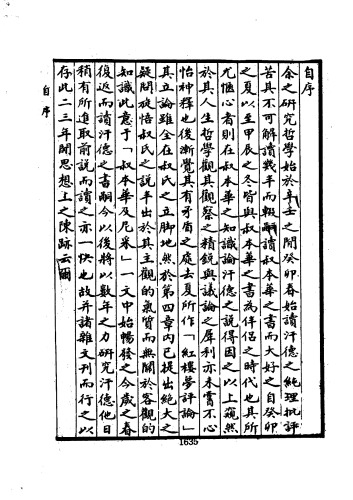 自序
余之研究哲學始於辛壬之間癸卯春始讀汗德之純理批評
苦其不可解讀幾半而輟嗣讀叔本華之書而大好之自癸卯
之夏以至甲辰之冬皆與叔本華之書為伴侶之時代也其所
尤愜心者則在叔本華之知識論汗德之說得因之以上窺然
於其人生哲學觀其觀察之精銳與議論之犀利亦未嘗不心
怡神釋也後漸覺其有矛盾之處去夏所作「紅樓夢評論」
其立論雖全在叔氏之立腳地然於第四章內已提出絕大之
疑問旋悟叔氏之說半出於其主觀的氣質而無關於客觀的
知識此意于「叔本華及尼采」一文中始暢發之今歲之春
復返而讀汗德之書嗣今以後將以數年之力研究汗德他日
稍有所進取前說而讀之亦一快也故并諸雜文刊而行之以
存此二三年間思想上之陳跡云爾
自序
1635